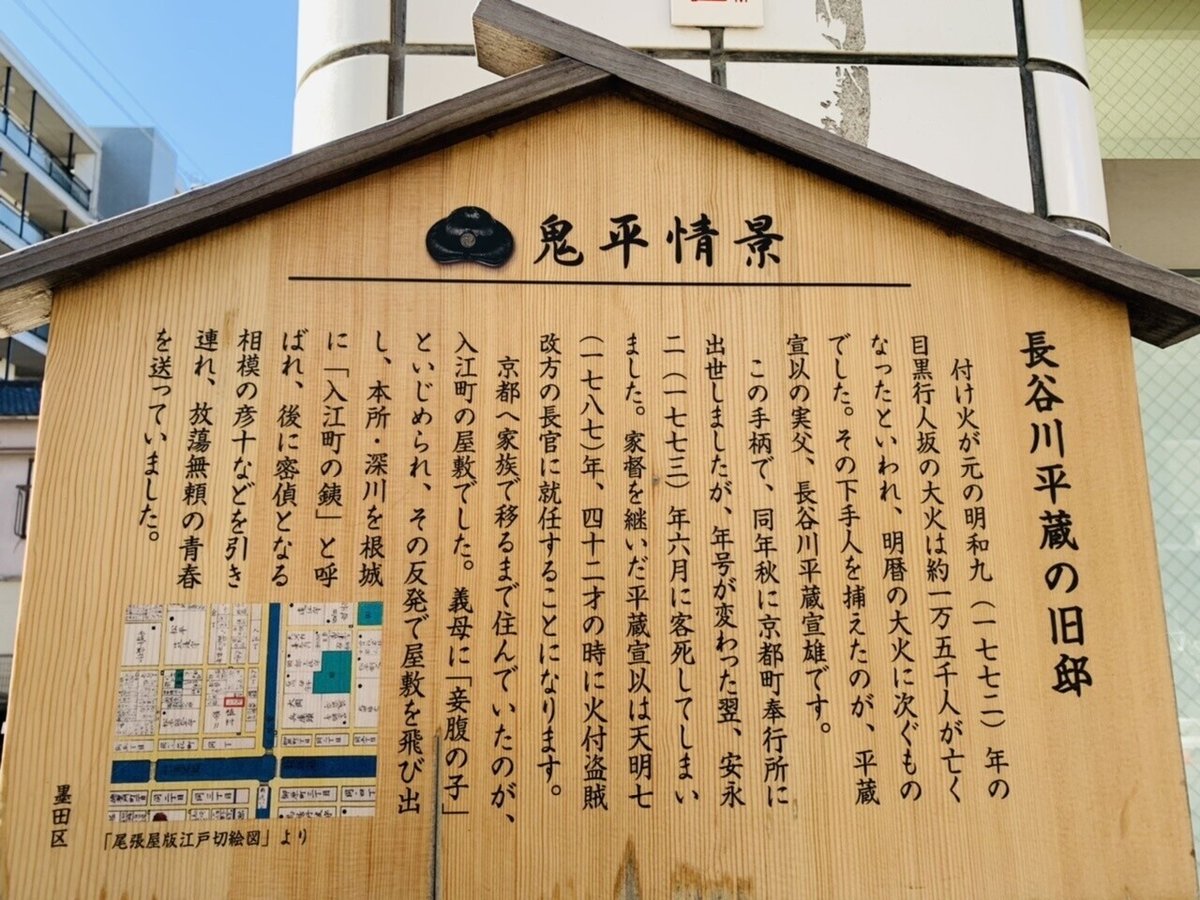 鬼平情景
長谷川平蔵の旧邸
付け火が元の明和九（一七七二）年の
目黒行人坂の大火は約一万五千人が亡く
なったといわれ、明暦の大火に次ぐもの
でした。その下手人を捕えたのが、平蔵
宣以の実父、長谷川平蔵宣雄です。
この手柄で、同年秋に京都町奉行所に
出世しましたが、年号が変わった翌、安永
二（一七七三）年六月に客死してしまい
ました。家督を継いだ平蔵宣以は天明七
（一七八七）年、四十二才の時に火付盗賊
改方の長官に就任することになります。
京都へ家族で移るまで住んでいたのが、
入江町の屋敷でした。義母に「妾腹の子」
といじめられ、その反発で屋敷を飛び出
し、本所・深川を根城
に「入江町の銕」と呼
ばれ、後に密偵となる
相模の彦十などを引き
連れ、放蕩無頼の青春
を送っていました。
「尾張屋版江戸切絵図」より
墨田区